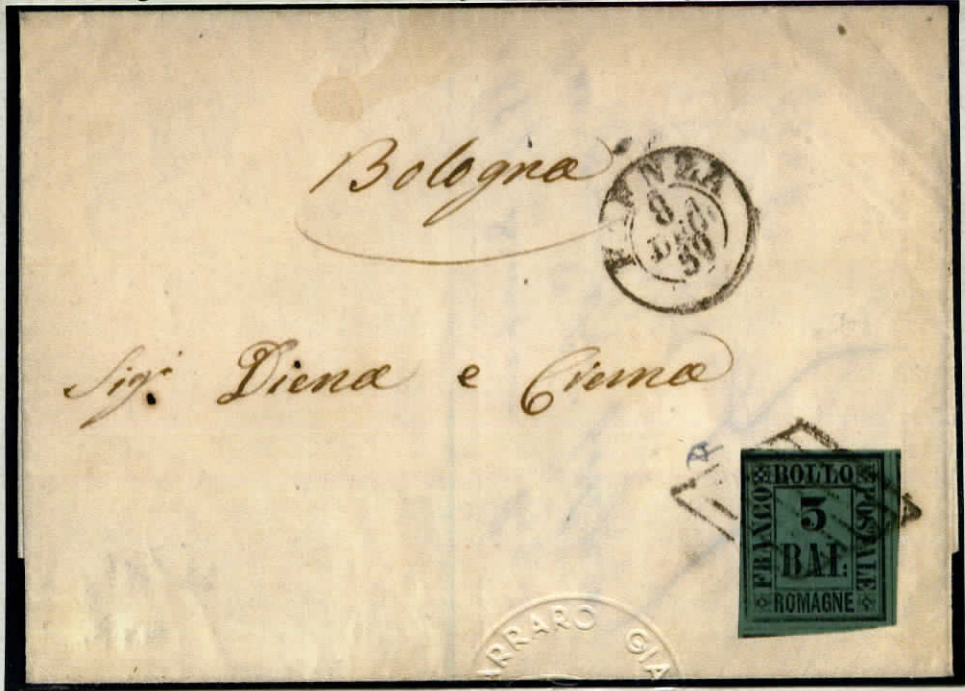 Bologna
FAENZA
8
DEC
59
Sigi Diena e
R
FRANCO BOLLO POSTALE
3
BAI.
ROMAGNE
ARRARO GIA